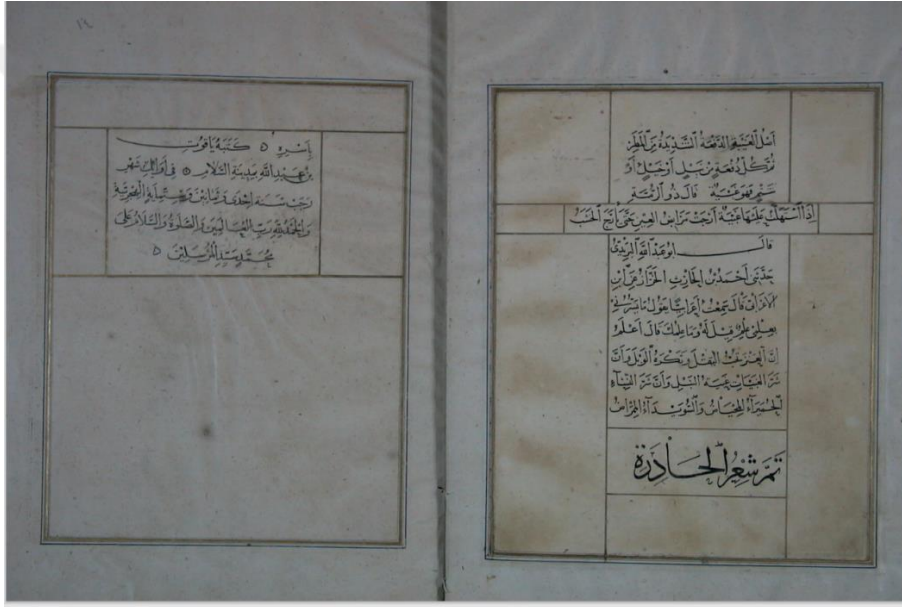 أصل الغبية الدفعة الشديدة من المطر
ثم كل دفعة من نبل أو خيل أو
شتم فهو غبية قال ذو الرمة
إذا استهلت عليها غبية أرجت مرابض العين حتى يأرج الخشب
قال أبو عبد الله اليزيدي
حدثني أحمد بن الحارث الخزاز عن ابن
الأعرابي قال سمعت أعرابيا يقول ما يسرني
بعلمي علم قيل له وما علمك قال أعلم
أن العنز تحب البقل وتكره الوبل وأن
شر الغبيات غبية النبل وأن شر النساء
الحميراء المحياض والسويداء الممراض
تم شعر الحادرة
بأسره ه كتبه ياقوت
بن عبد الله بمدينة السلام ه في أوائل شهر
رجب سنة إحدى وثمانين وستماية الهجرية
والحمد لله رب العالمين والصلوة والسلام على
محمد سيد المرسلين ه